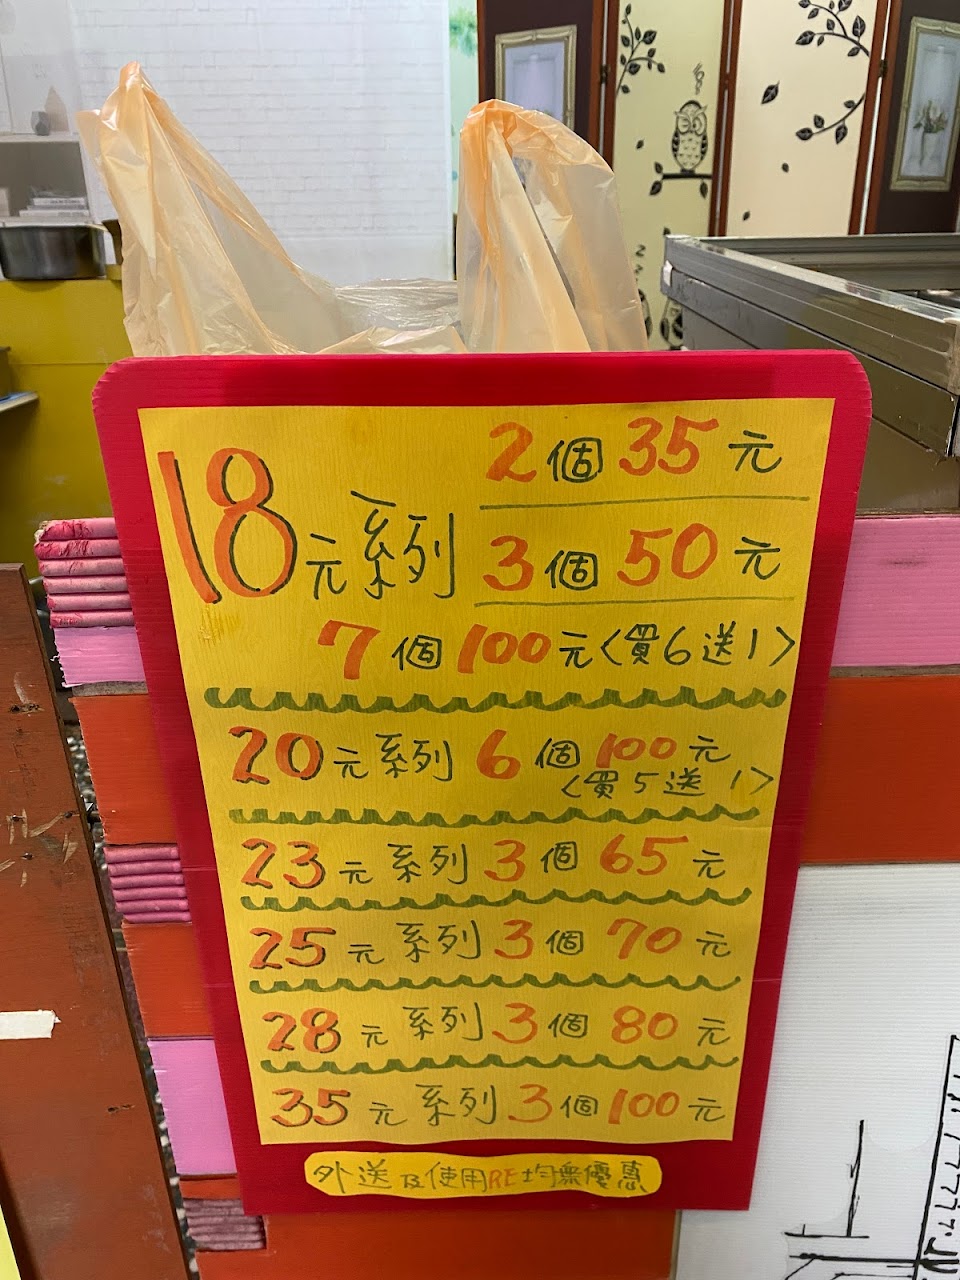 18元系列
2個35元
3個50元
7個100元<買6送1>
20元系列6個100元
<買5送1>
23元系列3個65元
25元系列3個70元
28元系列3個80元
35元系列3個100元
外送及使用RE均無優惠